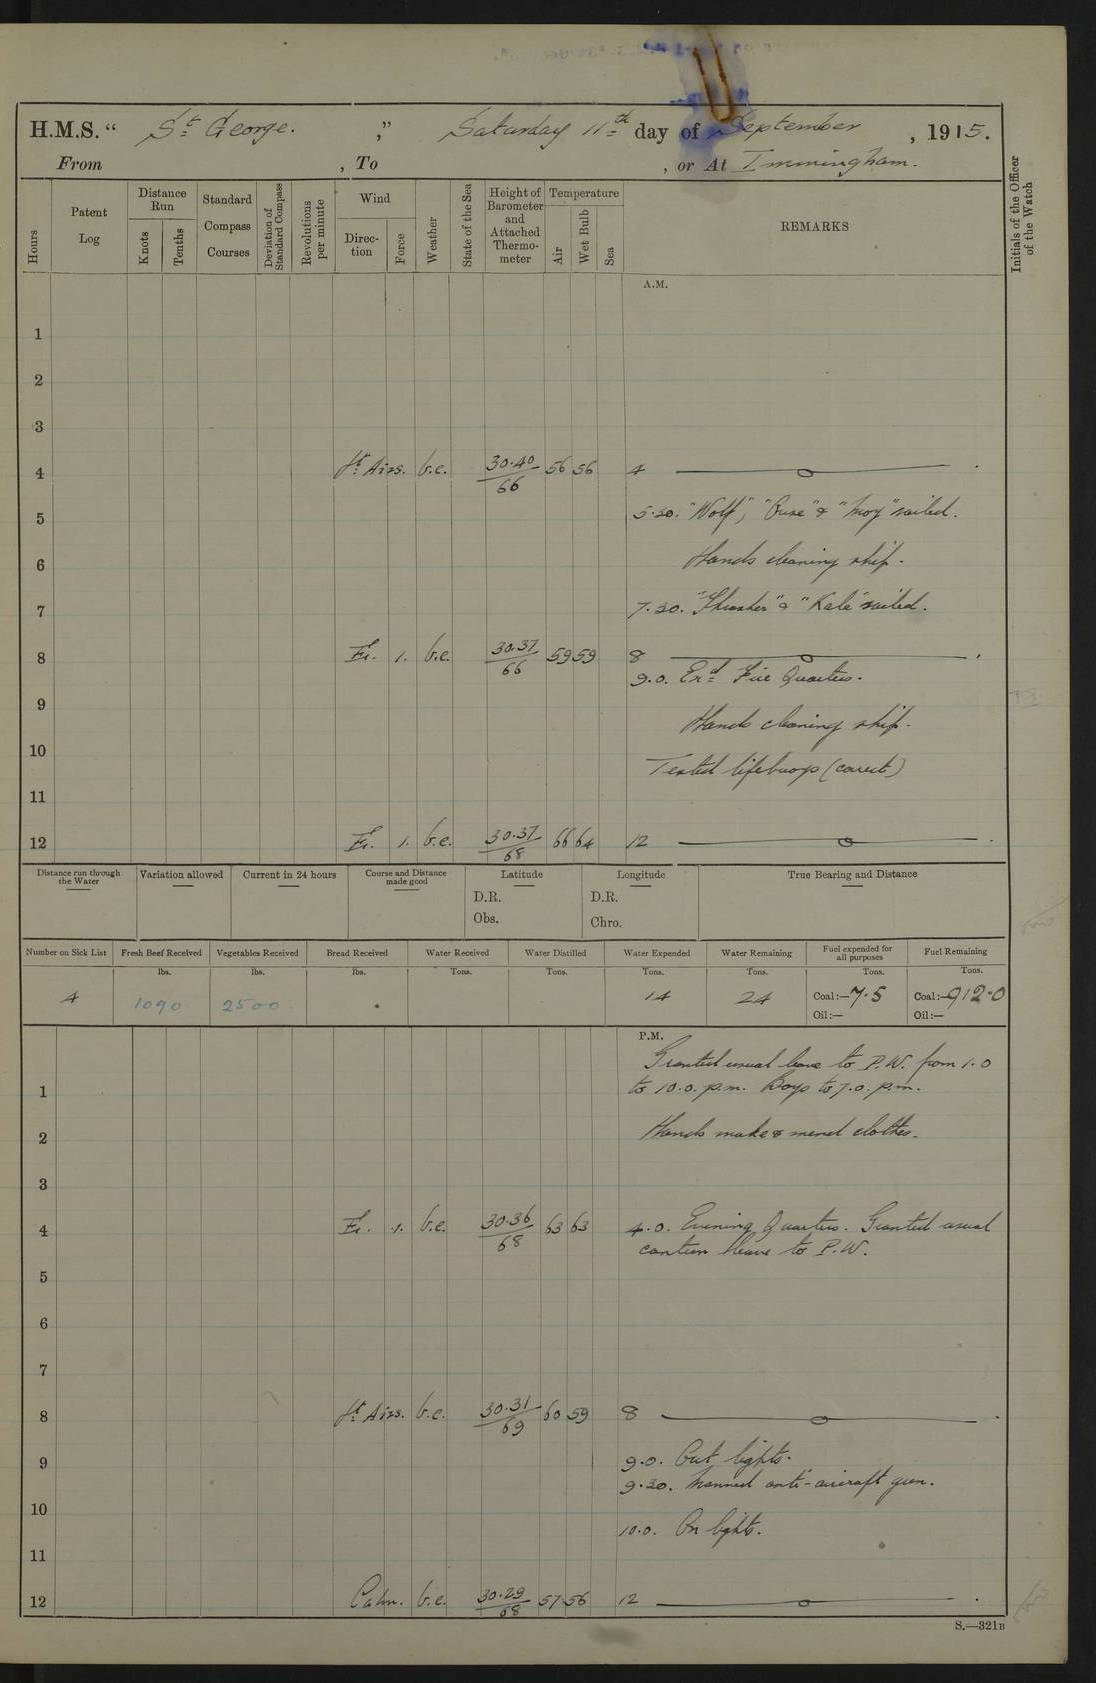 H.M.S. “ St George. ,” Saturday 11th day of September , 1915.
From , To , or At Immingham.
Hours
Patent Log
Distance Run
Knots
Tenths
Standard Compass Courses
Deviation of Standard Compass
Revolutions per minute
Wind
Direction
Force
Weather
State of the Sea
Height of Barometer and Attached Thermometer
Temperature
Air
Wet Bulb
Sea
REMARKS
Initials of the Officer of the Watch
A.M.
1
2
3
4 Lt Airs. b.c. 30.40/66 56 56 4
5 5.30. "Wolf", "Ouse" & "Moy" sailed.
6 Hands cleaning ship.
7 7.20. "Thrasher" & "Kale" sailed.
8 Ely. 1. b.c. 30.37/66 59 59 8
9.0. Exd Fire Quarters.
9 Hands cleaning ship.
10 Tested lifebuoys (correct)
11
12 Ely. 1. b.c. 30.37/68 66 64 12
Distance run through the Water
Variation allowed
Current in 24 hours
Course and Distance made good
Latitude
D.R.
Obs.
Longitude
D.R.
Chro.
True Bearing and Distance
Number on Sick List
Fresh Beef Received
Vegetables Received
Bread Received
Water Received
Water Distilled
Water Expended
Water Remaining
Fuel expended for all purposes
Fuel Remaining
lbs. lbs. lbs. Tons. Tons. Tons. Tons. Tons. Tons.
4 1090 2500 14 24 Coal:—7.5 Coal:—912.0
Oil:— Oil:—
P.M.
Granted usual leave to P.W. from 1.0
1 to 10.0. p.m. Boys to 7.0. p.m.
2 Hands make & mend clothes.
3
4 Ely. 1. b.c. 30.36/68 63 63 4.0. Evening Quarters. Granted usual
canteen leave to P.W.
5
6
7
8 Lt Airs. b.c. 30.31/69 60 59 8
9 9.0. Out lights.
9.30. Manned anti-aircraft gun.
10 10.0. On lights.
11
12 Calm. b.c. 30.29/68 57 56 12
S.—321B